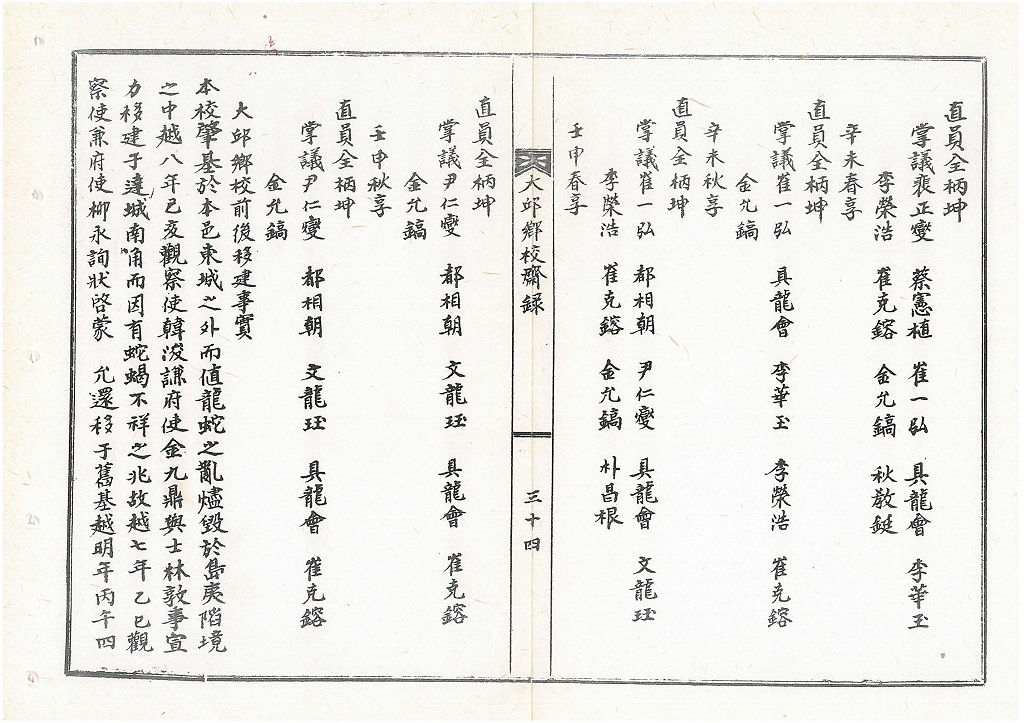 直員全柄坤
掌議裴正燮 蔡憲植 崔一弘 具龍會 李華玉
李榮浩 崔克鎔 金允鎬 秋敎鋌
辛未春享
直員全柄坤
掌議崔一弘 具龍會 李華玉 李榮浩 崔克鎔
金允鎬
辛未秋享
直員全柄坤
掌議崔一弘 都相朝 尹仁燮 具龍會 文龍珏
李榮浩 崔克鎔 金允鎬 朴昌根
壬申春享
大邱鄕校齋錄
三十四
直員全柄坤
掌議尹仁燮 都相朝 文龍珏 具龍會 崔克鎔
金允鎬
壬申秋享
直員全柄坤
掌議尹仁燮 都相朝 文龍珏 具龍會 崔克鎔
金允鎬
大邱鄕校前後移建事實
本校肇基於本邑東城之外而値龍蛇之亂燼毁於島夷陷境
之中越八年己亥觀察使韓浚謙府使金九鼎與士林敦事宣
力移建于達城南角而因有蛇蝎不祥之兆故越七年乙巳觀
察使兼府使柳永詢狀啓蒙 允還移于舊基越明年丙午四